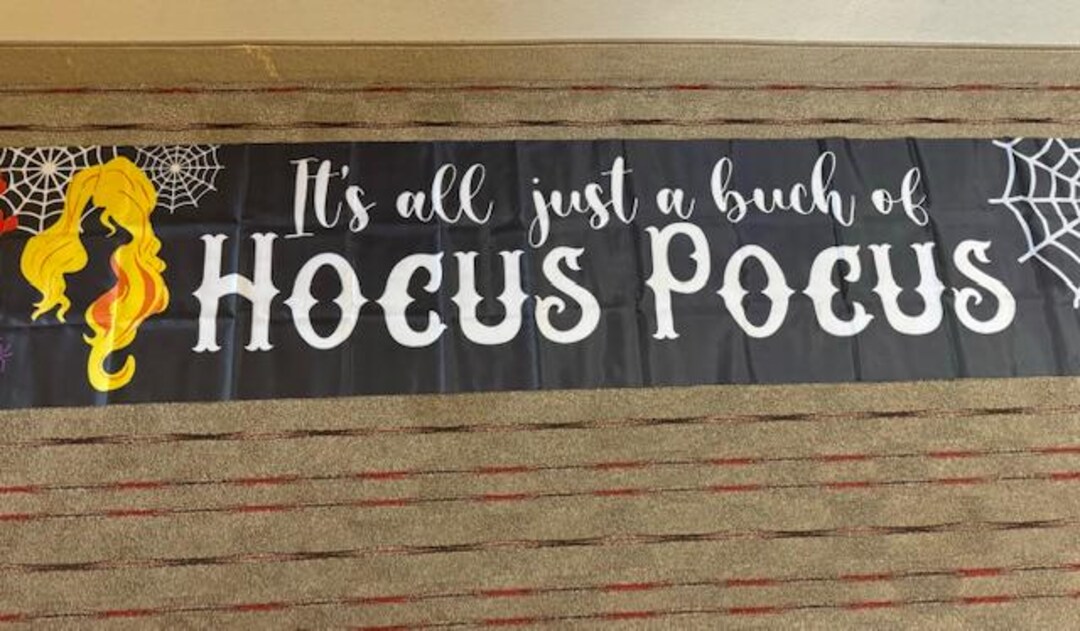 It's all just a buch of
HOCUS POCUS